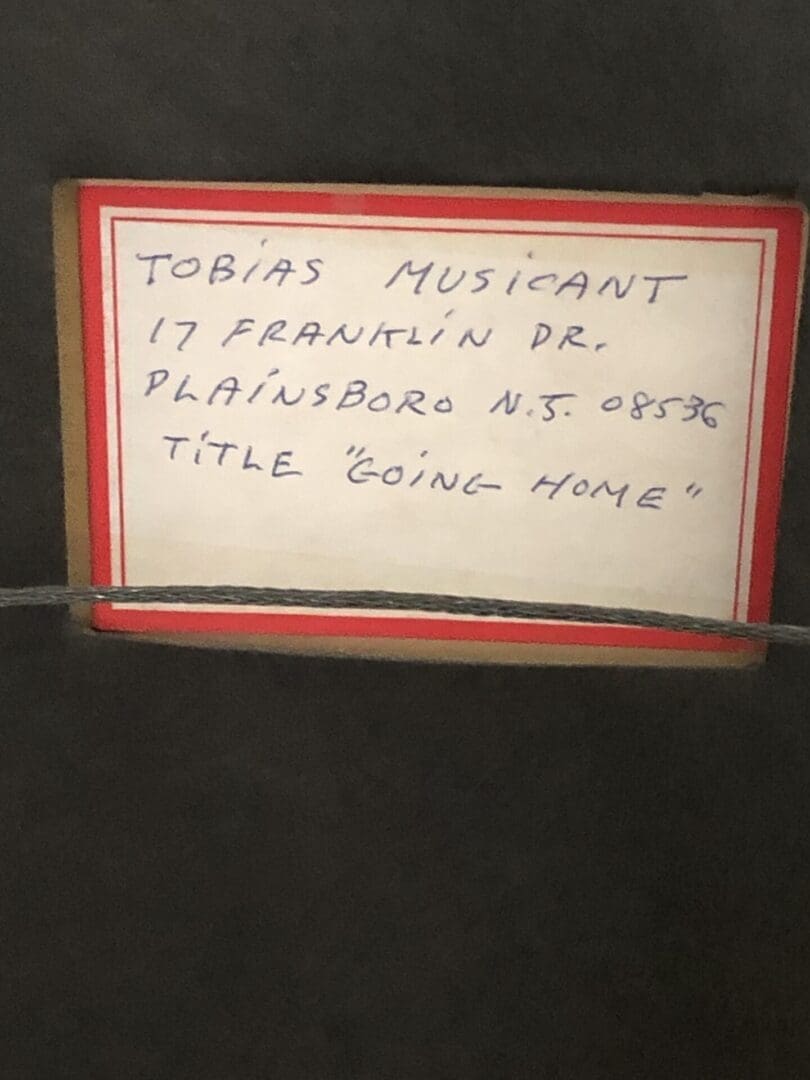 TOBiAS MUSiCANT
17 FRANKLiN DR.
PLAiNSBORO N.J. 08536
TiTLE "GOiNG HOME"